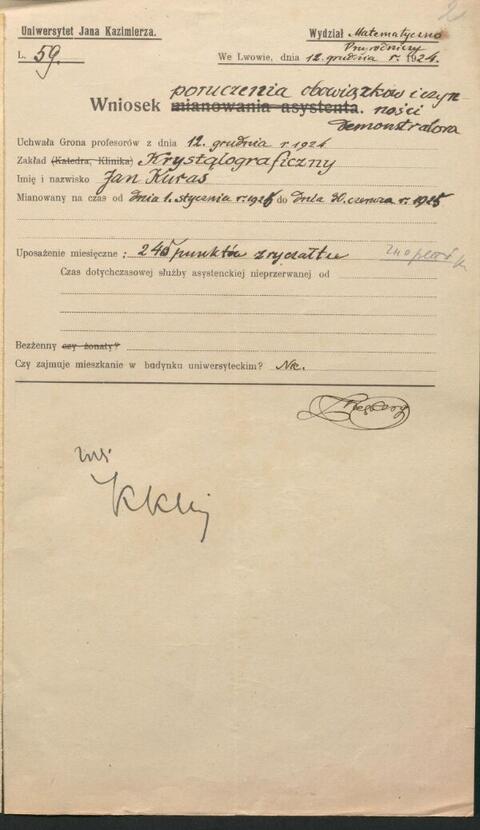 2
Uniwersytet Jana Kazimierza.
Wydział Matematyczno
Przyrodniczy
L. 59.
We Lwowie, dnia 12. grudnia r. 1924.
poruczenia obowiązków i czyn-
Wniosek mianowania asystenta. ności
demonstratora
Uchwała Grona profesorów z dnia 12. grudnia r 1924
Zakład (Katedra, Klinika) Krystalograficzny
Imię i nazwisko Jan Kuras
Mianowany na czas od dnia 1. stycznia r. 1925 do dnia 30. czerwca r. 1925
Uposażenie miesięczne: 245 punktów zryczałtu
Czas dotychczasowej służby asystenckiej nieprzerwanej od
Bezżenny czy żonaty?
Czy zajmuje mieszkanie w budynku uniwersyteckim? Nie.